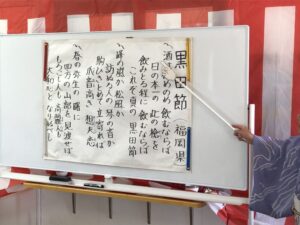 黒田節 （福岡県）
酒はのめのめ 飲むならば
日の本一の この槍を
飲みとる程に 飲むならば
これぞ真の 黒田節
峰の嵐か 松風か
訪ぬる人の 琴の音か
駒ひきとめて 立寄れば
爪音高き 想夫恋
春の弥生の 曙に
四方の山辺を 見渡せば